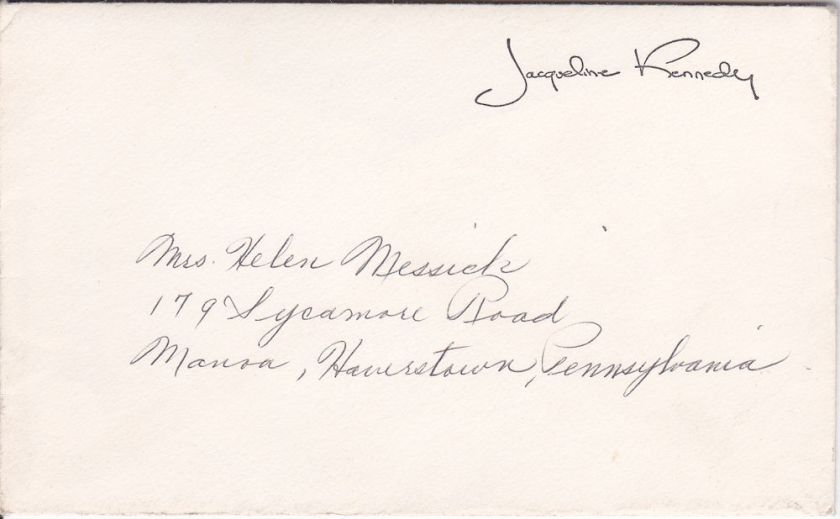 Jacqueline Kennedy
Mrs. Helen Messick
179 Sycamore Road
Manoa, Haverstown, Pennsylvania